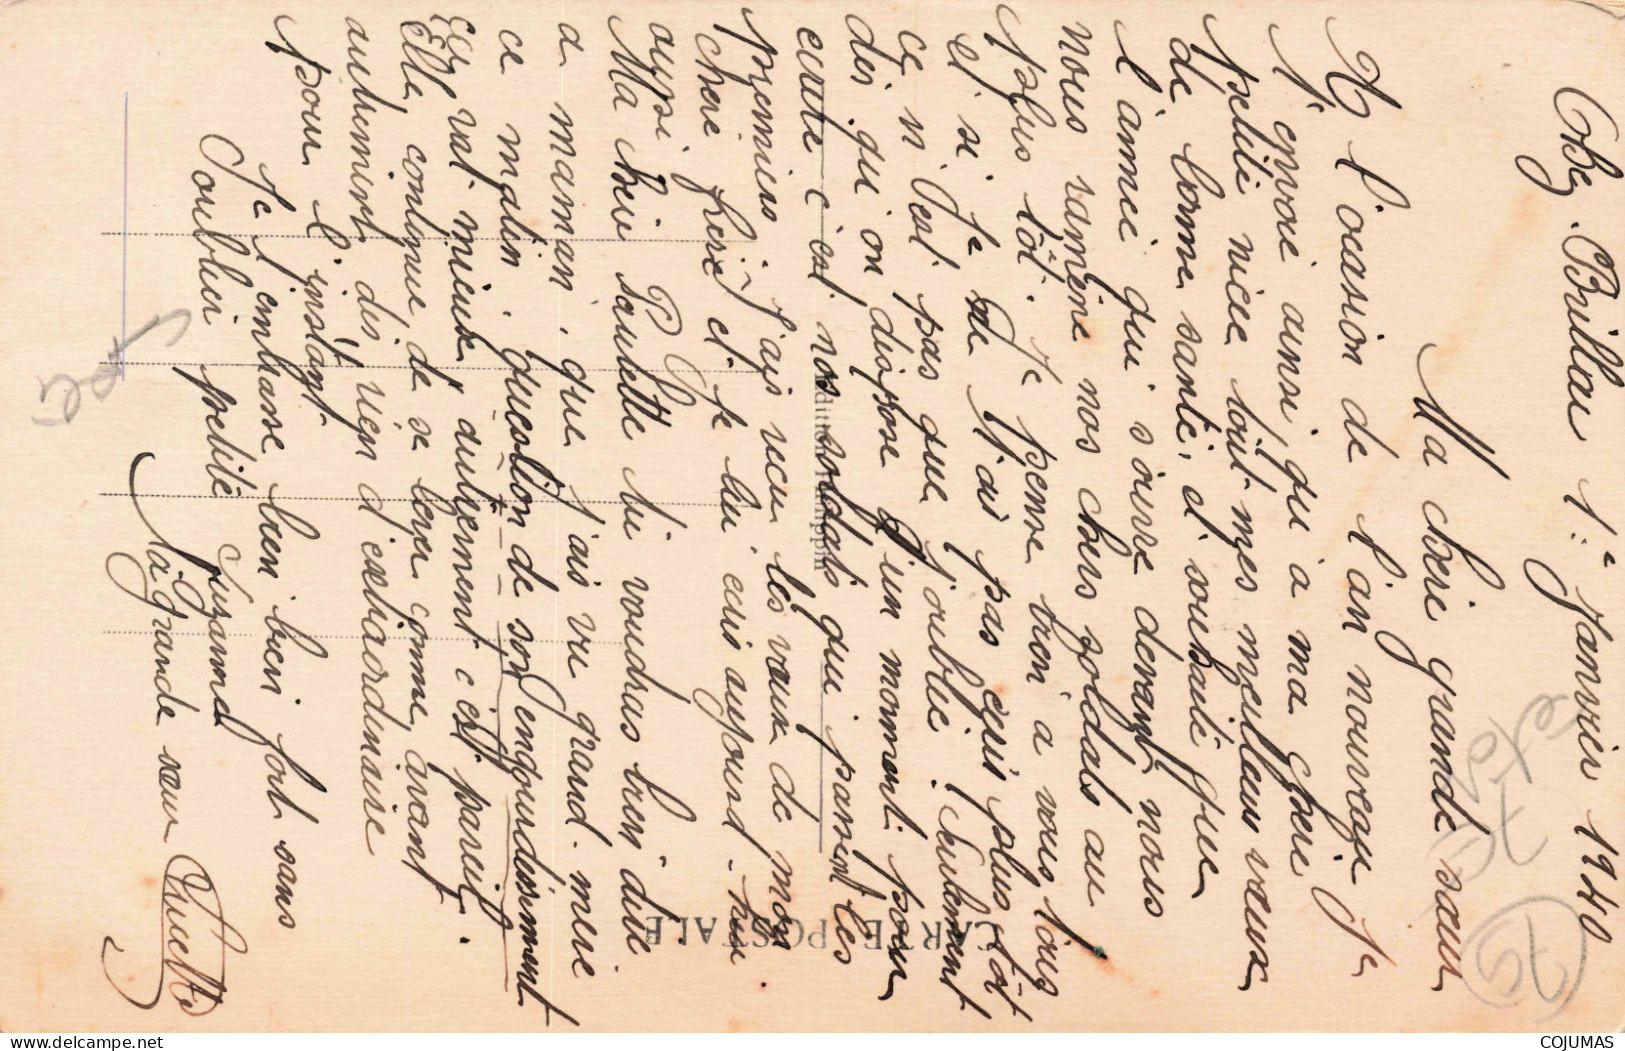 Chez Brillau 1er Janvier 1940
Ma chere grande sœur
A l'ocasion de l'an nouveau Je
t'envoie ainsi qu'a ma chere
petite niece tout mes meilleur vœux
de bonne santé, et souhaite que
l'année qui s'ouvre devant nous
nous ramène nos chers soldats au
plus tôt. Je pense bien a vous tous
et si Je ne t'ai pas ecris plus tôt
ce n'est pas que j'oublie. Seulement
dès qu'on dispose d'un moment pour
ecrire c'est nos soldats qui passent les
premiers. J'ais recu les vœux de mon
cher frère et je lui ecris aujourd-hui
aussi.
Ma chere sœurette tu voudras bien dire
a maman que J'ais vu grand-mere
ce matin. question de son engourdissement
Elle vat mieux, autrement c'est pareil.
Elle continue de se lever comme avant
autrement dis rien d'extraordinaire
pour l'instant
Je t'embrasse bien bien fort sans
oublier petite Suzanne
Ta grande sœur
CARTE POSTALE
79
COJUMAS